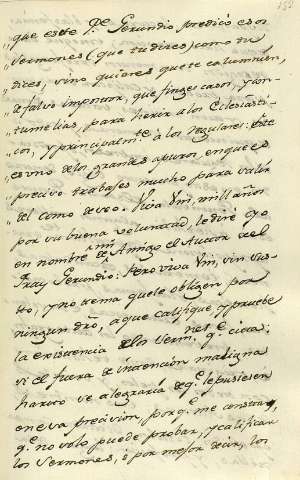 „ que este Pe. Gerundio predicó esos
„ Sermones (que tu dices) como tu
„ dices, sino quieres que te calumnien,
„ de falso impostor, que finges casos, y con-
„ tumelias, para herir a los Eclesiasti-
„ cos, y principalmte. à los regulares: Este
es uno de los grandes apuros, en que es
preciso trabajes mucho para salir
del como deseo. Viva Vm, mill años
por su buena voluntad, le dirè yo
en nombre de mi Amigo el Author del
Fray Gerundio: Pero viva Vm, sin sus-
to, y no tema que le obligen por
ningun dro, a que califique, y pruebe
la existencia de los Sermones q.e cita;
si el fuera de intencion maligna
harto se alegraria de q.e le pusiesen
en esa precision, porq.e me consta,
q.e no solo puede probar, y calificar
los Sermones, ò por mejor decir, los